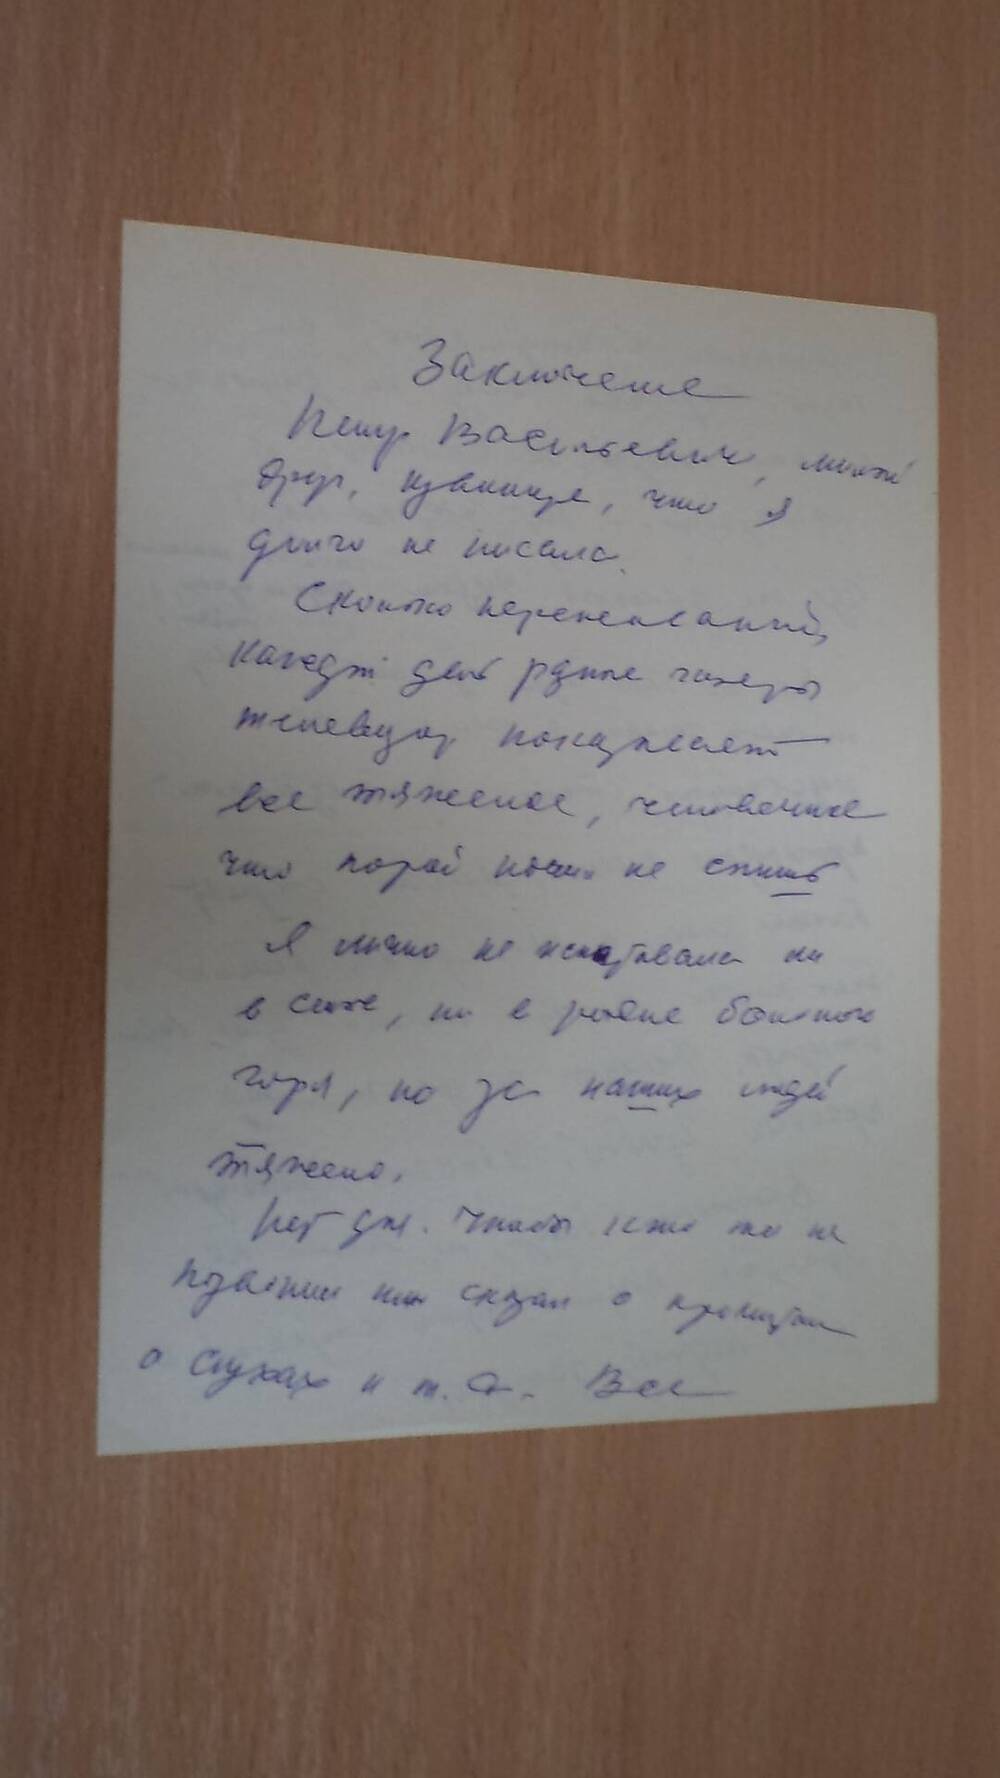 Заключение
Петр Васильевич, милый
друг, извините, что я
долго не писала.
Сколько переживаний,
каждый день радио газеты
телевизор показывает
все тяжелое, человечное
что порой ночи не спишь
Я лично не испытывала ни
в селе, ни в районе большого
горя, но за наших людей
тяжело.
Нет дня. Чтобы кто то не
позвонил или сказал о
о слухах и т.д. Все